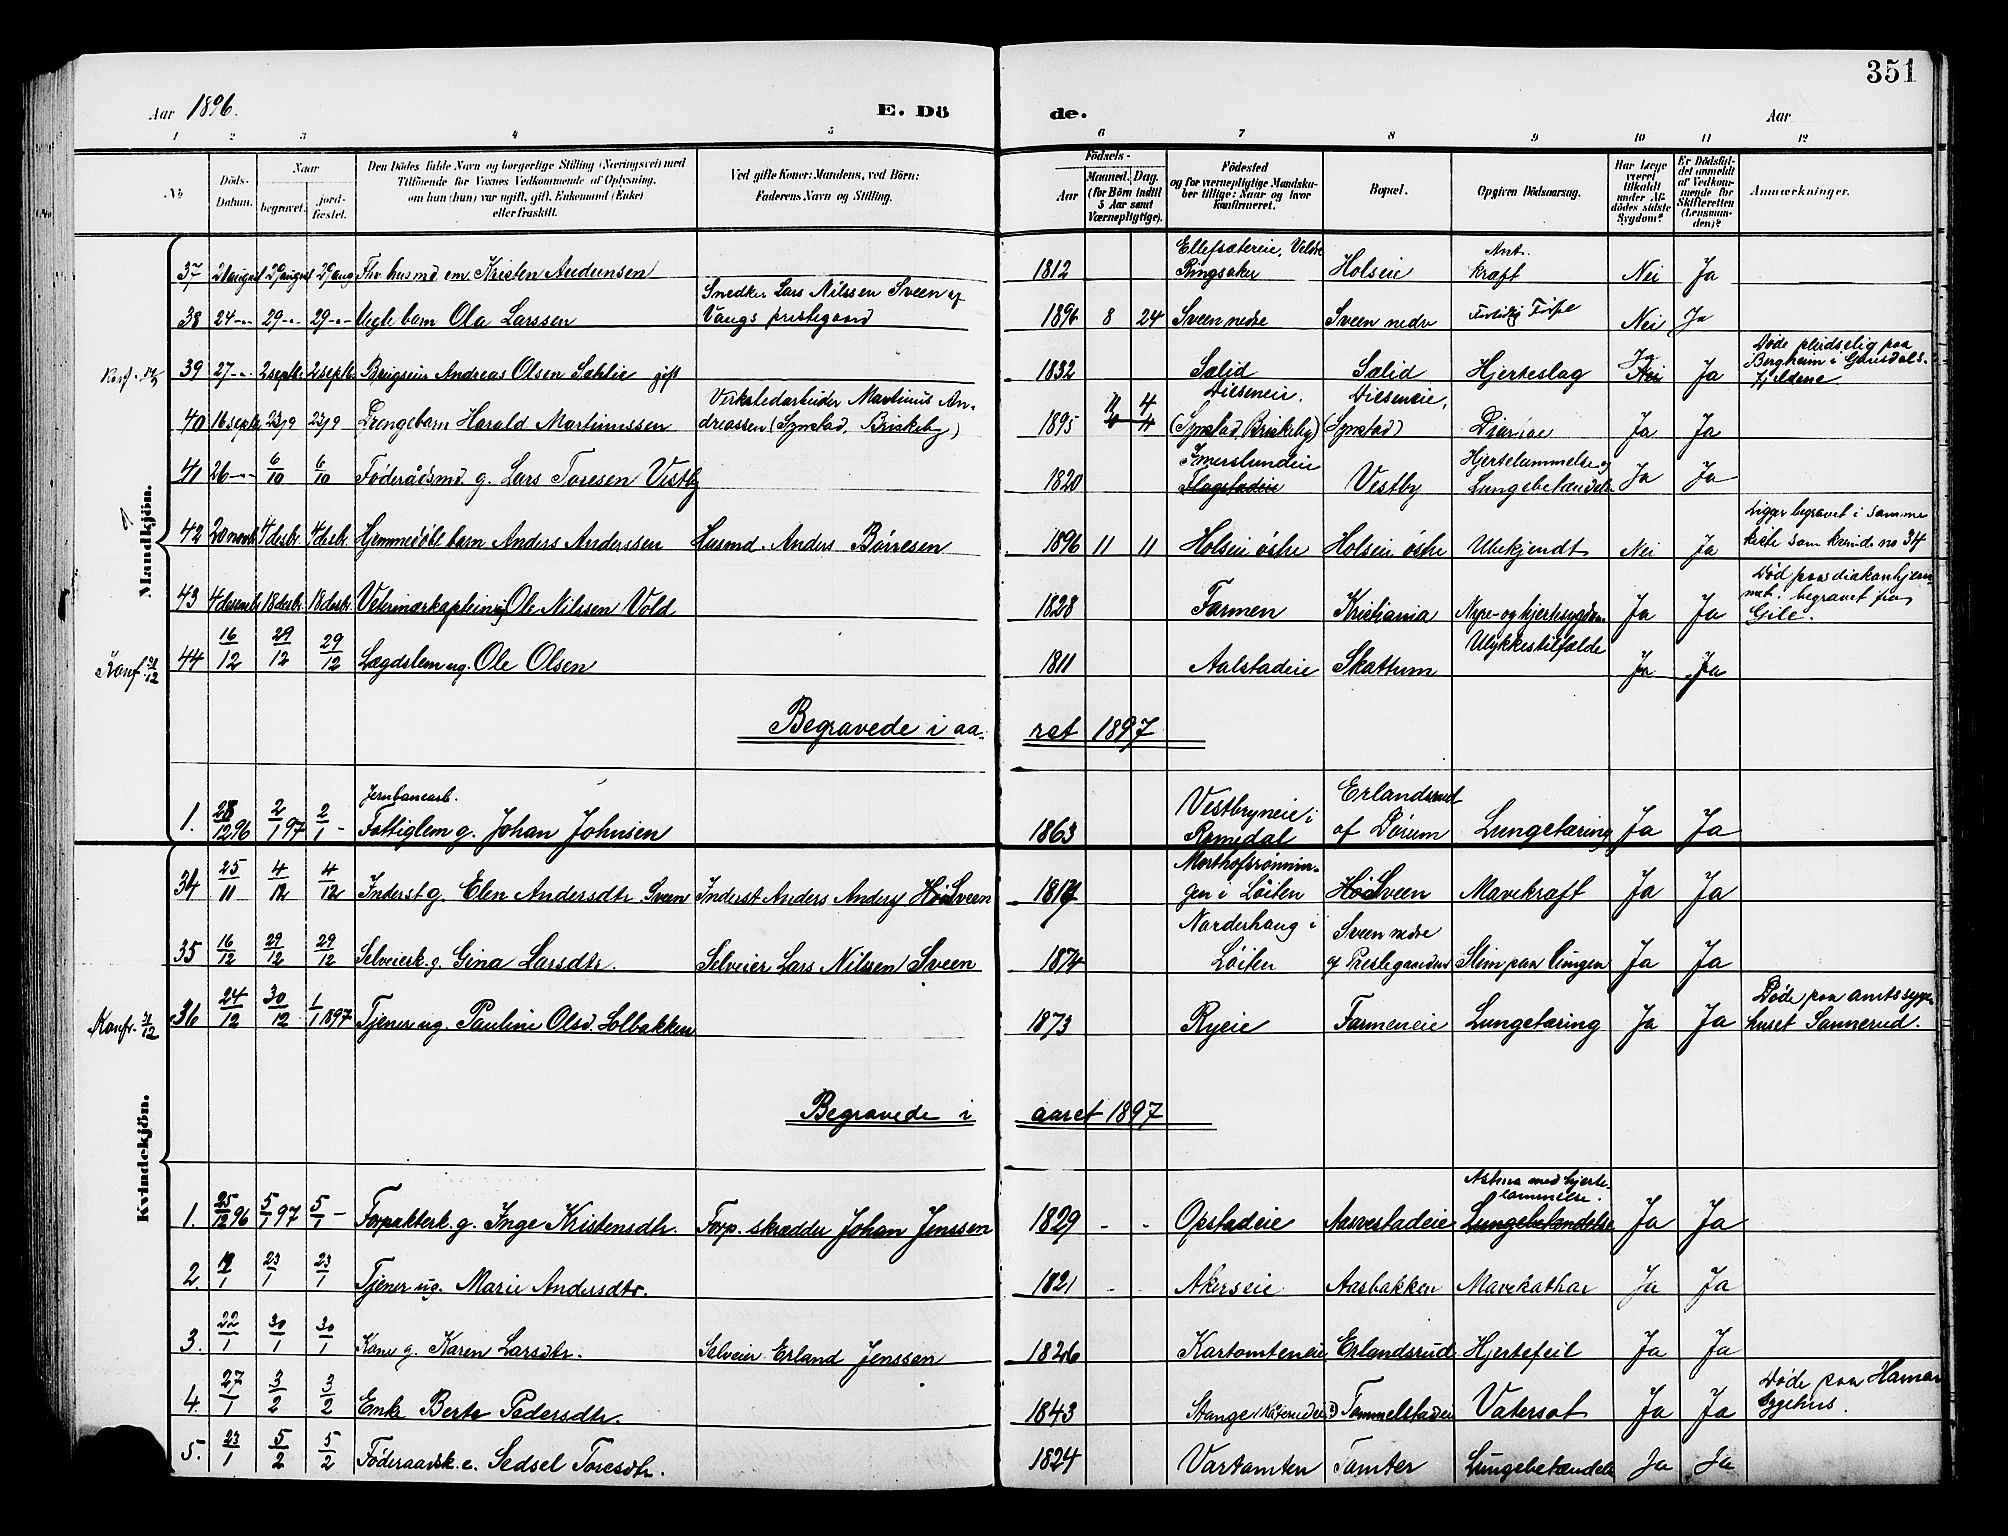 351
Aar 1896.
E. Dö de.
Aar
1 2 3 4 5 6 7 8 9 10 11 12
№
Döds-Datum.
Naar begravet. jordfæstet.
Den Dödes fulde Navn og borgerlige Stilling (Næringsvei) med Tilföiende for Voxnes Vedkommende af Oplysning, om han (hun) var ugift, gift, Enkemand (Enke) eller fraskilt.
Ved gifte Koner: Mandens, ved Börn: Faderens Navn og Stilling.
Födsels-
Aar Maaned. Dag. (for Börn indtil 5 Aar samt Værnepligtige).
Födested og for værnepligtige Mandskaber tillige: Naar og hvor konfirmeret.
Bopæl.
Opgiven Dödsaarsag.
Har Læge været tilkaldt under Afdödes sidste Sygdom?
Er Dödsfaldet anmeldt af Vedkommende for Skifteretten (Lensmanden)?
Anmærkninger.
Mandkjön.
37 21 august 29 august 29 aug Fhv. husmd em. Kristen Andersen 1812 Ellefsætereie, Veldre Ringsaker Holseie kræft Nei Ja
38 24 -"- 29 -"- 29 -"- Ola Larssen Snedker Lars Nilssen Sveen af Vangs prestegaard 1896 8 24 Sveen nedre Sveen nedre Nei Ja
39 27 -"- 2 septr 2 septr Andreas Olsen Sahlie gift 1832 Sælid Sælid Hjerteslag Ja Ja Døde pludselig paa Bergheim i Gausdals-fjeldene
40 16 septr 23/9 23/9 Drengebarn Harald Martinussen Verkstedarbeider Martinus Andreassen (Synstad, Briskeby) 1895 4 (Synstad, Briskeby) (Synstad) Ja Ja
41 26 -"- 6/10 6/10 Føderådsmd. g. Lars Toresen Vestby 1820 Imerslundeie Flagstadeie Vestby Hjertelammelse og Lungebetændelse Ja Ja
42 20 novb 4 desbr 4 desbr. Hjemmedøbt barn Anders Anderssen Husmd. Anders Børresen 1896 11 11 Holseie østre Holseie østre Ubekjendt Nei Ja Ligger begravet i samme kiste som kvinde no 34
43 4 desembr 18 desbr. 18 desbr. Veterinærkaptein Ole Nilssen Vold 1828 Farmen Kristiania Nyre- og hjertesygdom Ja Ja Død paa diakonhjemmet. begravet fra Gile.
Konf. 31/12 44 16/12 29/12 29/12 Lægdslem ug. Ole Olsen 1811 Aalstadeie Skattum Ulykkestilfælde Ja Ja
Begravede i aaret 1897
1. 28/12 96 2/1 97 2/1 - Jernbanearb. Fattiglem g. Johan Johnsen 1863 Vestbryneie i Romedal Erlandsrud af Dørum Lungetæring Ja Ja
Kvindekjön.
34 25/11 4/12 4/12 Inderst g. Elen Andersdtr. Sveen Inderst Anders Anders Høisveen i Løiten Høisveen Mavekræft Ja Ja
35 16/12 29/12 29/12 Selveierk. g. Gina Larsdtr. Selveier Lars Nilssen Sveen 1874 Narderhaug i Løiten Sveen nedre af Prestegaarden Slim paa lungen Ja Ja
Konfr. 31/12 36 24/12 30/12 1/1 1897 Tjener ug. Pauline Olsd. Solbakken 1873 Ryeie Farmeneie Lungetæring Ja Ja Døde paa amtssygehuset Sannerud.
Begravede i aaret 1897
1. 25/12 96 5/1 97 5/1 - Forpakterk. g. Inge Kristensdtr. Forp. skrædder Johan Jenssen 1829 - - Opstadeie Aasvestadeie Astma med hjertelammelse. Lungebetændelse Ja Ja
2. 23/1 23/1 Tjener ug. Marie Andersdtr. 1821 - - Akerseie Aasbakken Mavekathar Ja Ja
3. 22/1 30/1 30/1 Kone g. Karen Larsdtr. Selveier Erland Jenssen 1826 Kartomteneie Erlandsrud Hjertefeil Ja Ja
4. 27/1 3/2 3/2 Enke Berte Pedersdtr. 1843 Stange Tommelstadeie Vatersot Ja Ja Døde paa Hamar Sygehus.
5. 23/1 5/2 5/2 Føderaadsk. e. Sedsel Toresdtr. 1824 Vartomten Tomter Lungebetændelse Ja Ja